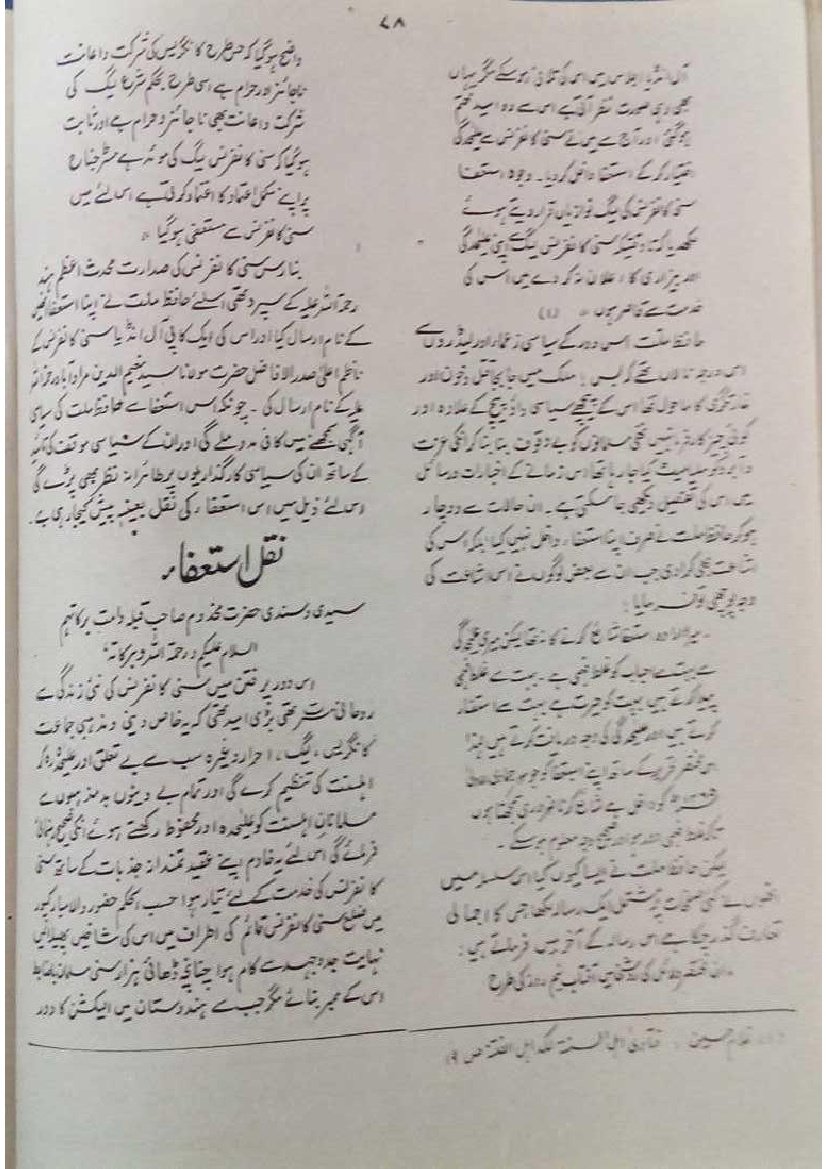 ۷۸
آل انڈیا اجلاس میں اس کی تلافی ہوسکے مگر یہاں
بھی وہی صورت نظر آتی ہے اس سے وہ امید ختم
ہوگئی اور آج سے میں نے سنی کانفرنس سے علیحدگی
اختیار کرکے استعفا داخل کردیا۔ وجوہ استعفا
سنی کانفرنس کی لیگ نوازیاں قرار دیتے ہوئے
لکھدیا کہ تاوقتیکہ سنی کانفرنس لیگ سے اپنی علیحدگی
اور بیزاری کا اعلان نہ کردے میں اس کی
خدمت سے قاصر ہوں " (۱)
حافظ ملت اس دور کے سیاسی زعماء اور لیڈروں سے
اس درجہ نالاں تھے کہ بس! ملک میں جابجا قتل و خون اور
غارتگری کا ماحول تھا اس کے پیچھے سیاسی داؤ پیچ کے علاوہ اور
کوئی چیز کارفرما نہیں تھی مسلمانوں کو بے وقوف بنا بنا کر انکی عزت
و آبرو کو ملیامیٹ کیا جارہا تھا اس زمانے کے اخبارات و رسائل
میں اس کی تفصیل دیکھی جاسکتی ہے۔ ان حالات سے دوچار
ہوکر حافظ ملت نے صرف اپنا استعفاء داخل نہیں کیا بلکہ اس کی
اشاعت بھی کرادی جب ان سے بعض لوگوں نے اس اشاعت کی
وجہ پوچھی تو فرمایا:
میرا ارادہ استعفا شائع کرنے کا نہ تھا لیکن میری علیحدگی
سے بہت سے احباب کو غلط فہمی ہے۔ بہت سے غلط فہمی
پیدا کرتے ہیں بہت کو حیرت ہے بہت سے استفسار
کرتے ہیں اور علیحدگی کی وجہ دریافت کرتے ہیں لہٰذا
اس مختصر تحریر کے ساتھ اپنے استعفا کو جو
کو داخل ہے شائع کرنا ضروری سمجھتا ہوں
تاکہ غلط فہمی دور ہو اور صحیح وجہ معلوم ہوسکے۔
لیکن حافظ ملت نے ایسا کیوں کیا اس سلسلہ میں
انھوں نے کئی صفحات پر مشتمل ایک رسالہ لکھا جس کا اجمالی
تعارف گذر چکا ہے اس رسالہ کے آخر میں فرماتے ہیں:
ان مختصر دلائل کی روشنی میں آفتاب نیم روز کی طرح
واضح ہوگیا کہ جس طرح کانگریس کی شرکت و اعانت
ناجائز اور حرام ہے اسی طرح بحکم شرع لیگ کی
شرکت و اعانت بھی ناجائز و حرام ہے اور ثابت
ہوگیا کہ سنی کانفرنس لیگ کی موئد ہے مسٹر جناح
پر اپنے مکمل اعتماد کا اعتماد کرتی ہے اس لئے میں
سنی کانفرنس سے مستعفی ہوگیا "
بنارس سنی کانفرنس کی صدارت محدث اعظم ہند
رحمۃ اللہ علیہ کے سپرد تھی اسلئے حافظ ملت نے اپنا استعفا انھیں
کے نام ارسال کیا اور اس کی ایک کاپی آل انڈیا سنی کانفرنس کے
ناظم اعلیٰ صدر الافاضل حضرت مولانا سید نعیم الدین مرادآبادی رحمۃ اللہ
علیہ کے نام ارسال کی۔ چونکہ اس استعفا سے حافظ ملت کی سیاسی
آگہی سمجھنے میں کافی مدد ملے گی اور ان کے سیاسی موقف کی تائید
کے ساتھ ان کی سیاسی کارگذاریوں پر طائرانہ نظر بھی پڑے گی
اس لئے ذیل میں اس استعفاء کی نقل بعینہٖ پیش کیجارہی ہے۔
نقل استعفاء
سیدی و سندی حضرت مخدوم صاحب قبلہ دامت برکاتہم
السلام علیکم و رحمۃ اللہ و برکاتہ"
اس دور پر فتن میں سنی کانفرنس کی نئی زندگی سے
روحانی مسرت تھی بڑی امید تھی کہ یہ خاص دینی و مذہبی جماعت
کانگریس، لیگ، احرار وغیرہ سب سے بے تعلق اور علیحدہ رہ کر
اہلسنت کی تنظیم کرے گی اور تمام بے دینوں بدمذہبوں سے
مسلمانان اہلسنت کو علیحدہ اور محفوظ رکھتے ہوئے انکی صحیح رہنمائی
فرمائے گی اس لئے یہ خادم اپنے عقیدتمندانہ جذبات کے ساتھ سنی
کانفرنس کی خدمت کے لئے تیار ہوا حسب الحکم حضور والا مبارکپور
میں ضلع سنی کانفرنس قائم کی اطراف میں اس کی شاخیں پھیلائیں
نہایت جدوجہد سے کام ہوا چنانچہ ڈھائی ہزار سنی مسلمان باضابطہ
اس کے ممبر بنائے مگر جب سے ہندوستان میں الیکشن کا دور
غلام حسین، فتاویٰ اہل السنۃ ص ۹)